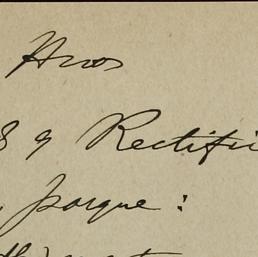 Hnos
8 y Rectifi
porque: